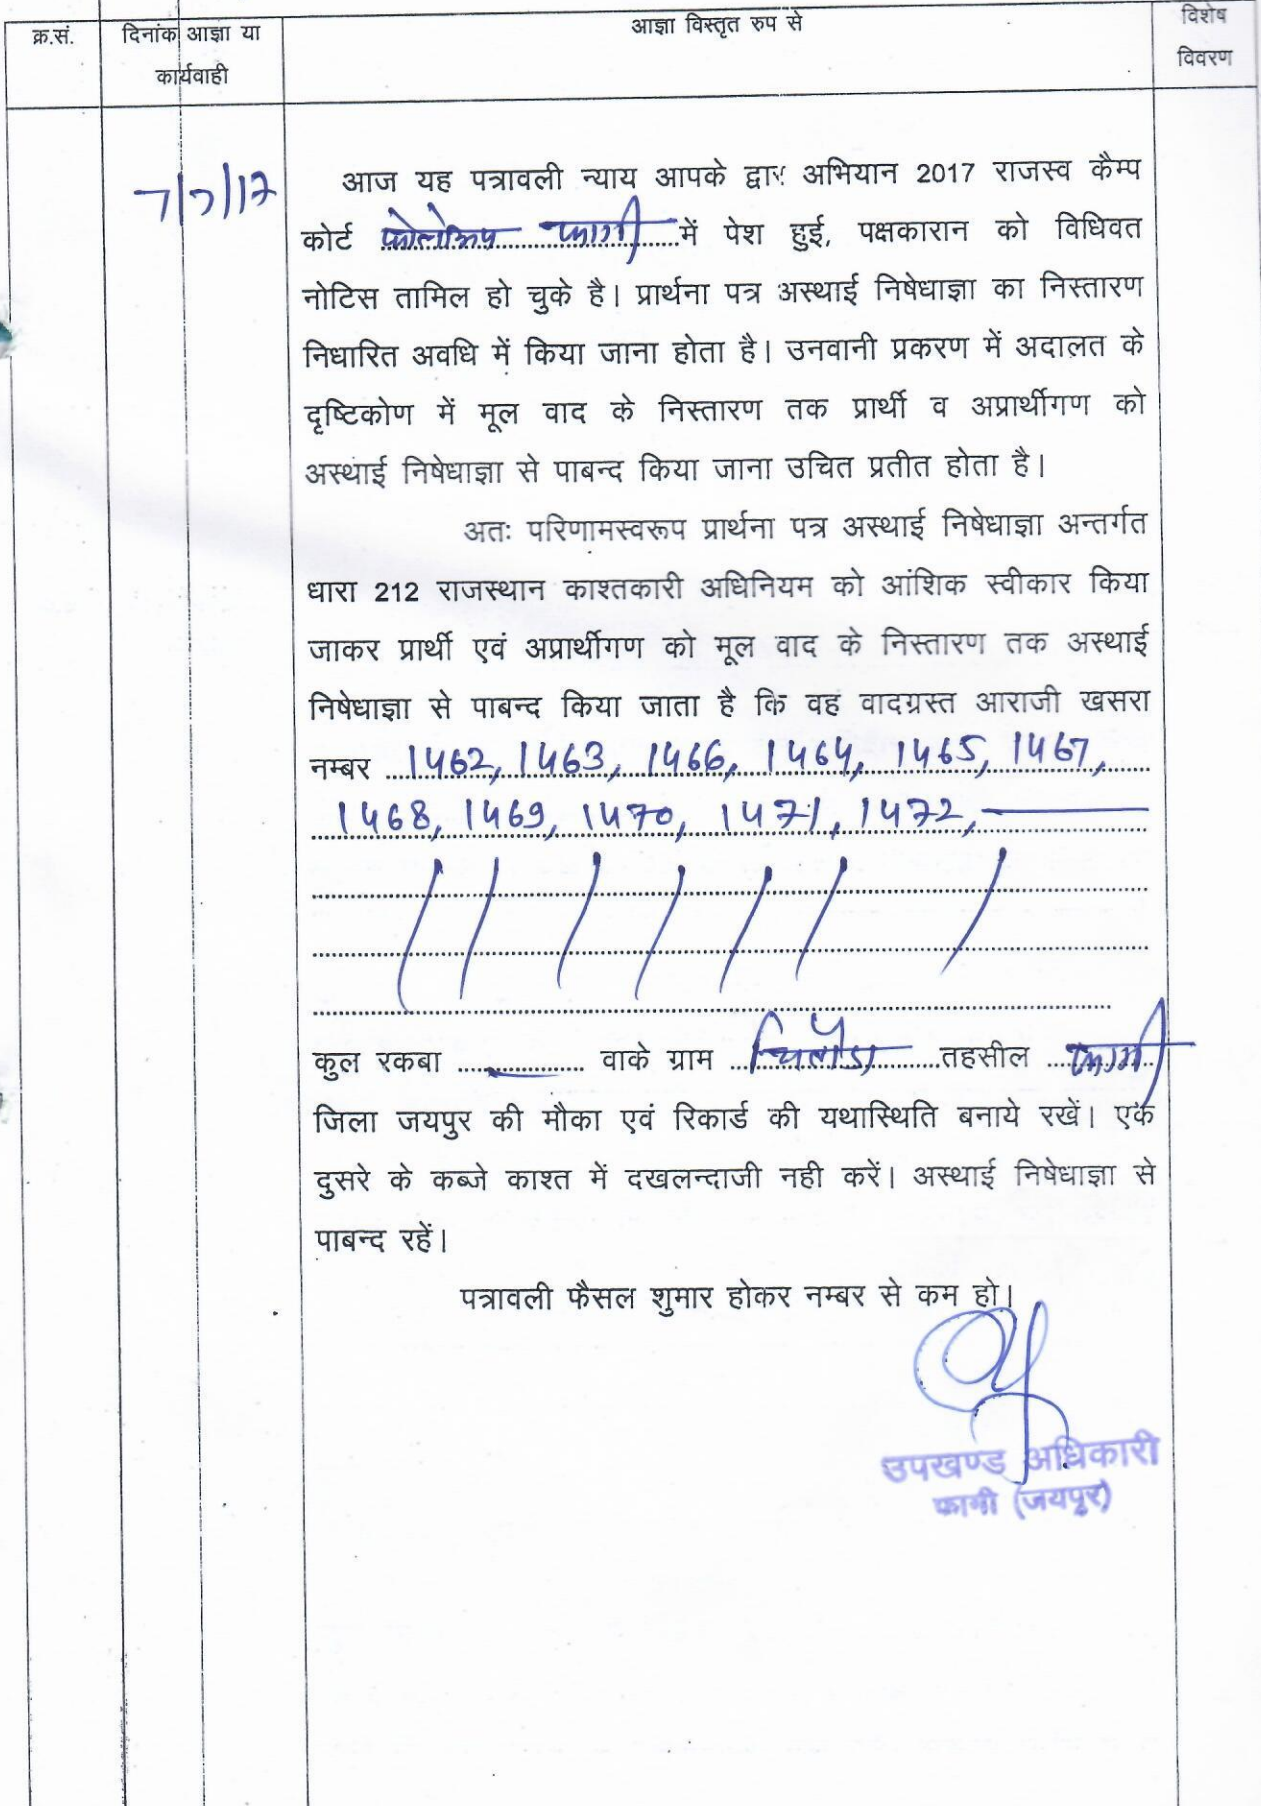 क्र.सं. दिनांक आज्ञा या आज्ञा विस्तृत रुप से विशेष
कार्यवाही विवरण
7/7/17 आज यह पत्रावली न्याय आपके द्वार अभियान 2017 राजस्व कैम्प
कोर्ट फागी में पेश हुई, पक्षकारान को विधिवत
नोटिस तामिल हो चुके है। प्रार्थना पत्र अस्थाई निषेधाज्ञा का निस्तारण
निधारित अवधि में किया जाना होता है। उनवानी प्रकरण में अदालत के
दृष्टिकोण में मूल वाद के निस्तारण तक प्रार्थी व अप्रार्थीगण को
अस्थाई निषेधाज्ञा से पाबन्द किया जाना उचित प्रतीत होता है।
अतः परिणामस्वरूप प्रार्थना पत्र अस्थाई निषेधाज्ञा अन्तर्गत
धारा 212 राजस्थान काश्तकारी अधिनियम को आंशिक स्वीकार किया
जाकर प्रार्थी एवं अप्रार्थीगण को मूल वाद के निस्तारण तक अस्थाई
निषेधाज्ञा से पाबन्द किया जाता है कि वह वादग्रस्त आराजी खसरा
नम्बर 1462, 1463, 1466, 1464, 1465, 1467,
1468, 1469, 1470, 1471, 1472,
कुल रकबा .................. वाके ग्राम तहसील फागी
जिला जयपुर की मौका एवं रिकार्ड की यथास्थिति बनाये रखें। एक
दुसरे के कब्जे काश्त में दखलन्दाजी नही करें। अस्थाई निषेधाज्ञा से
पाबन्द रहें।
पत्रावली फैसल शुमार होकर नम्बर से कम हो।
उपखण्ड अधिकारी
फागी (जयपुर)